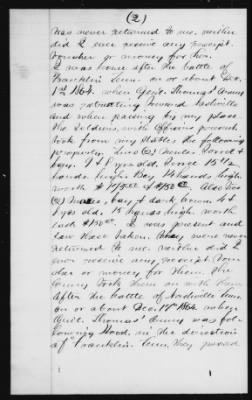 (2)
was never returned to me. neither
did I ever receive any receipt.
Voucher or money for him.
I was home after the battle of
Franklin Tenn. on or about Dec.
1st 1864. when Genl. Thomas' army
was retreating toward Nashville
and when passing by my place
the Soldiers, with Officers present
took from my stable the following
property Two (2) mules
9 & 8 yrs old. 15 1/2
hands high Bay 14 hands high
worth $175.00 & $150.00. Also Two
(2) Mares, bay & dark brown 4 &
8 yrs old. 15 hands high. worth
each $150.00. I was present and
saw them taken. They were never
returned to me. neither did I
ever receive any receipt Vou-
cher or money for them. The
army took them on with them
After the battle of Nashville Tenn.
on or about Dec. 1864 when
Genl. Thomas' Army was fol-
lowing Hood. in the direction
of Franklin Tenn. they passed